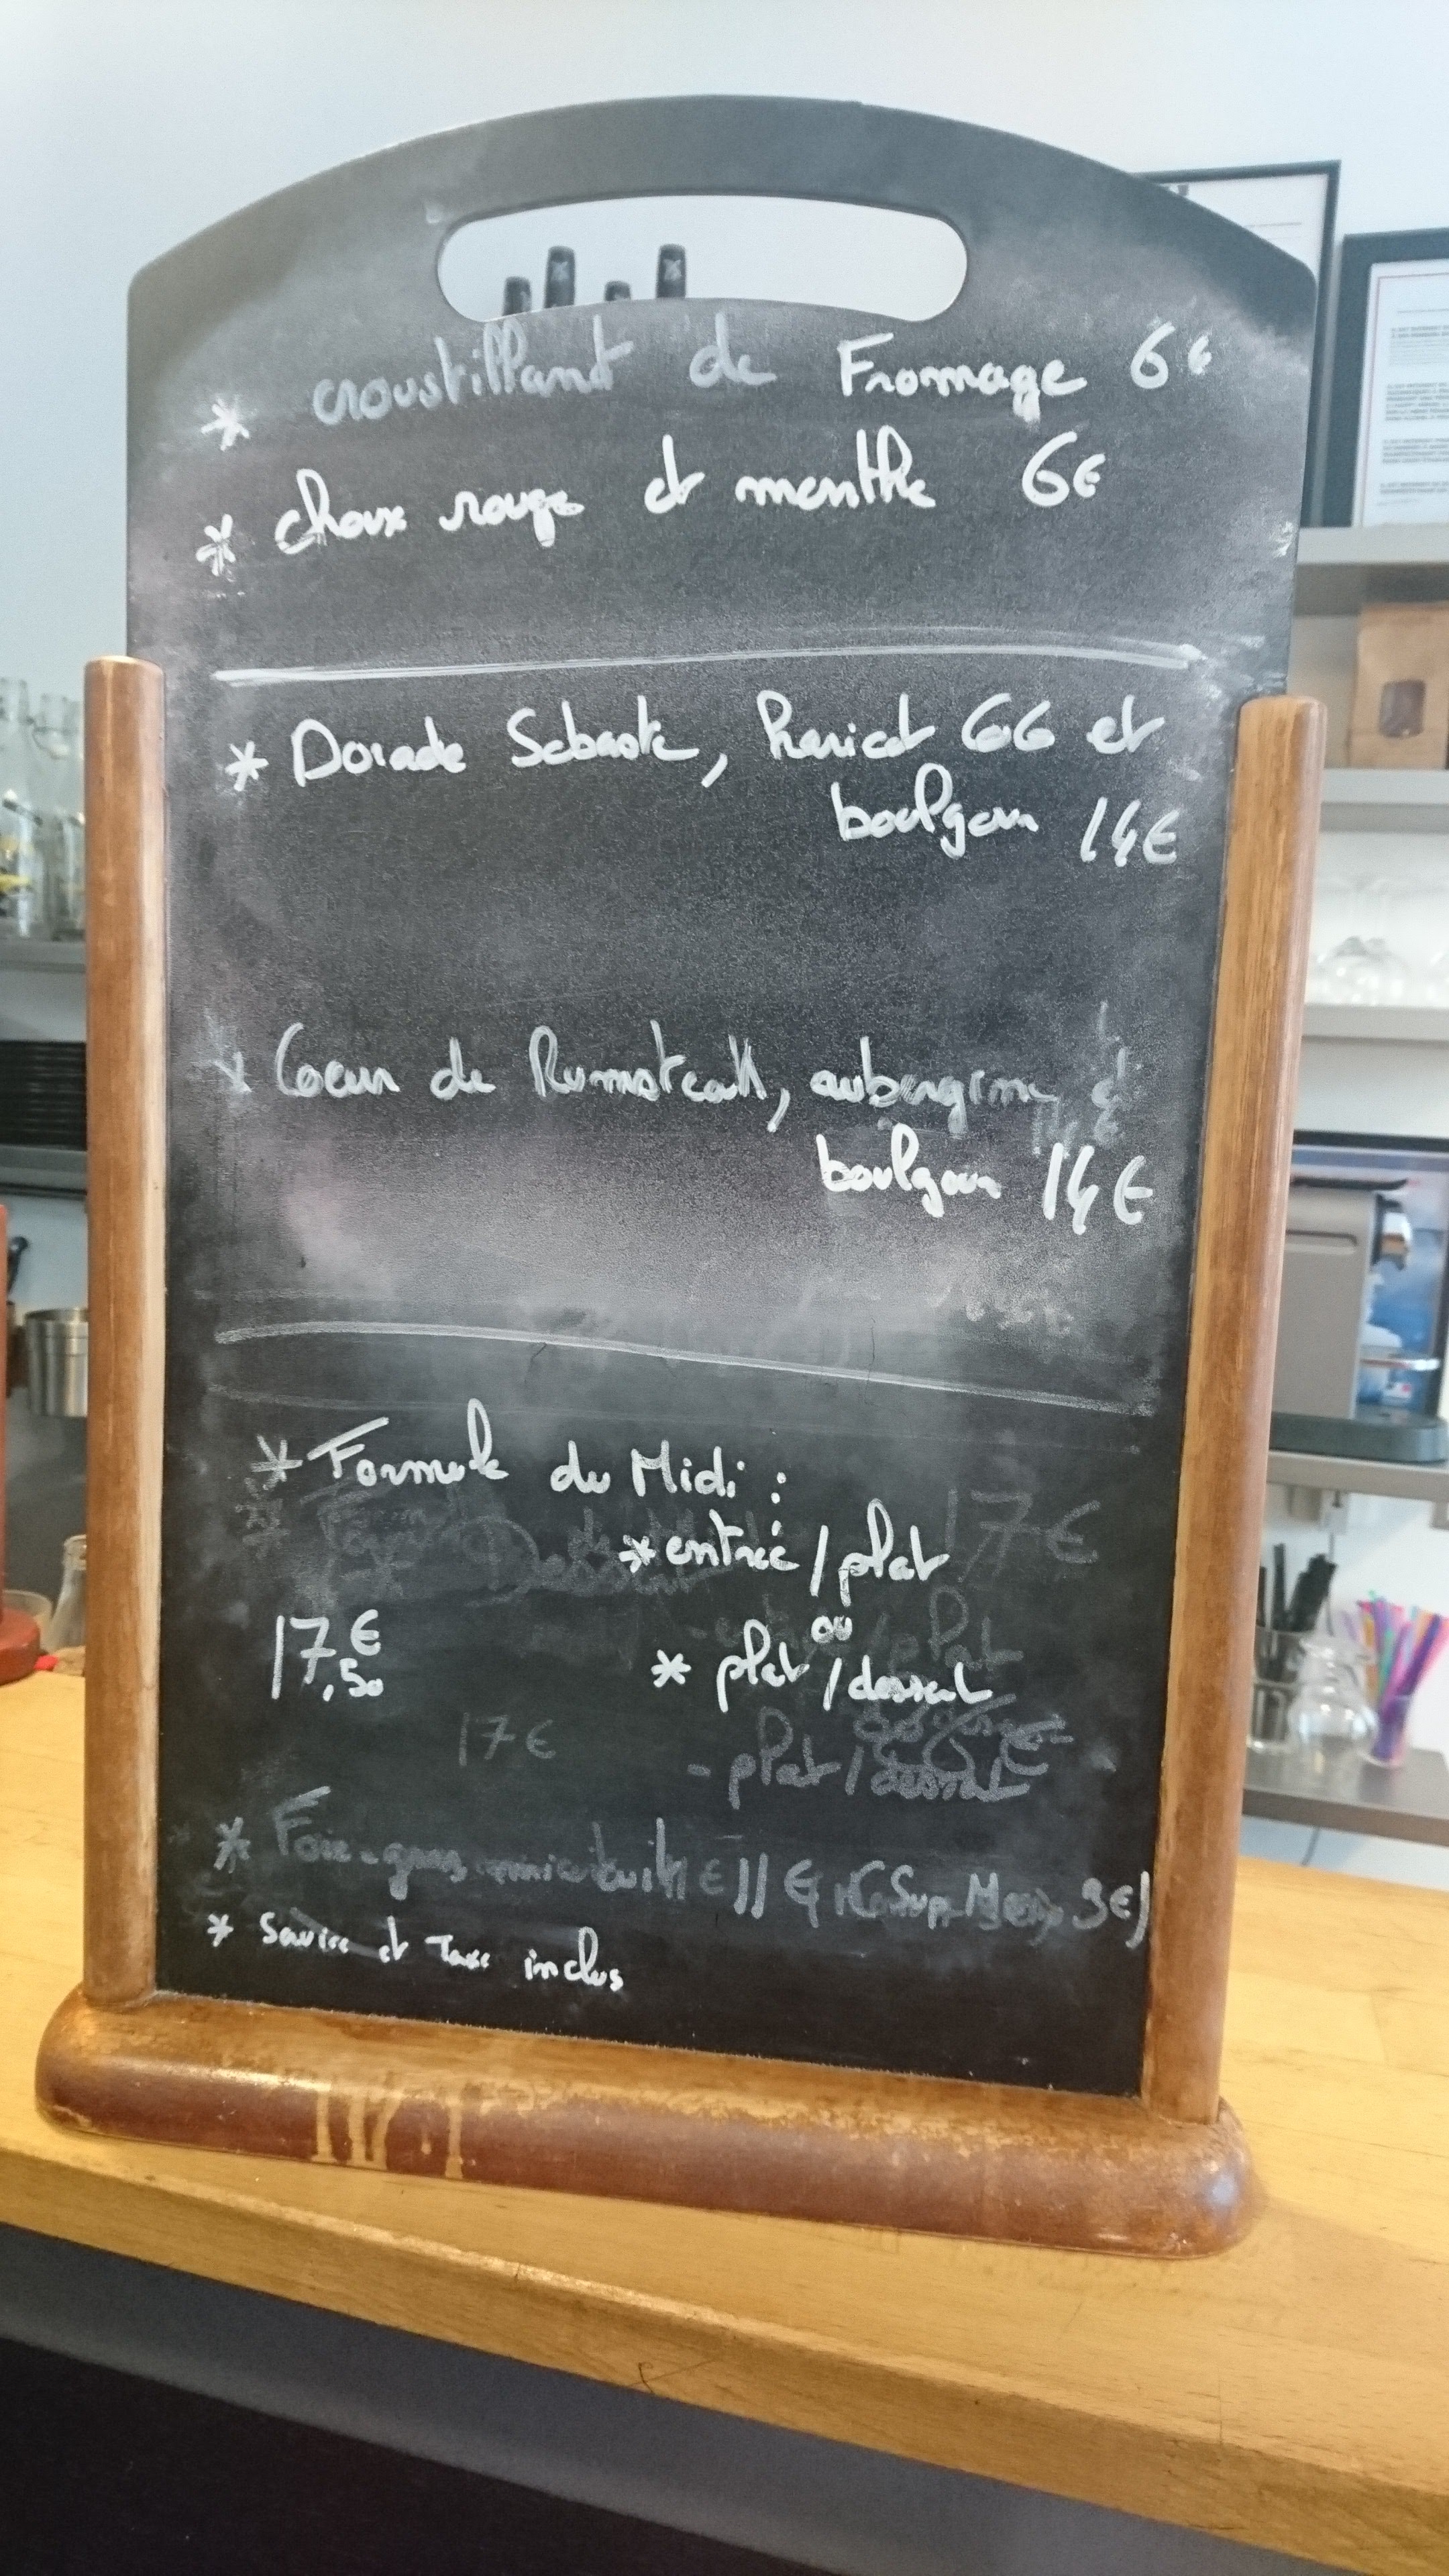 * croustillant de Fromage 6€
* choux rouge et menthe 6€
* Dorade Sebaste, Haricot GG et
boulgour 14€
* Coeur de Rumsteak, aubergine et
boulgour 14€
* Formule du Midi :
17€
* entrée / plat
ou
17,50€ * plat / dessert
17€
- plat / dessert
* Foie-gras mi-cuit 11€ (Sup 3€)
* Service et Taxe inclus